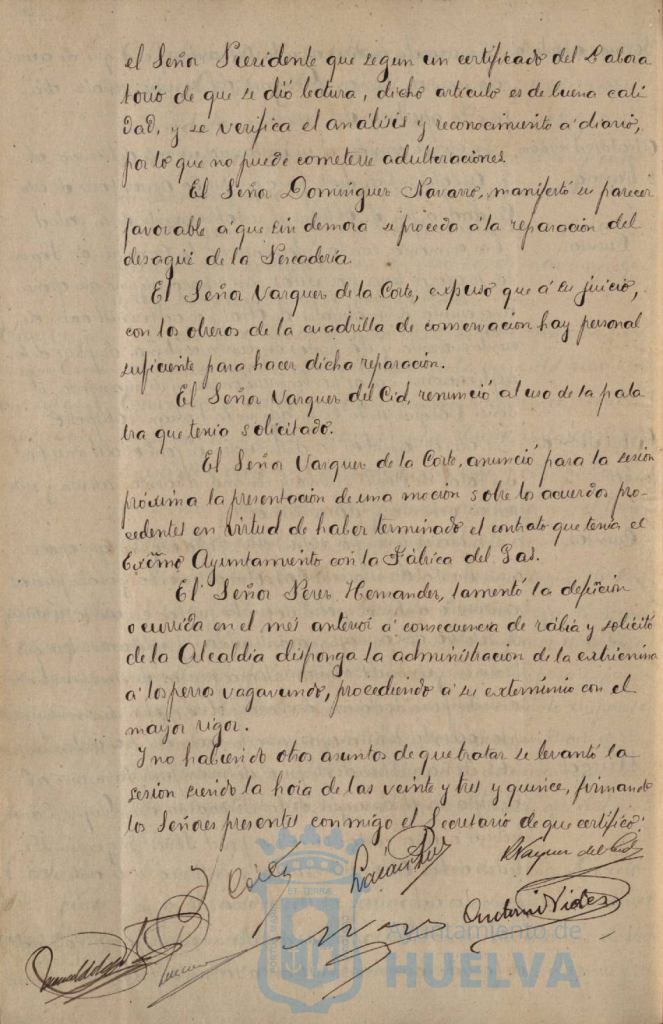 el Señor Presidente que segun un certificado del Labora
torio de que se dió lectura, dicho artículo es de buena cali
dad, y se verifica el análisis y reconocimiento á diario,
por lo que no puede cometerse adulteraciones.
El Señor Dominguez Navarro, manifestó su parecer
favorable á que sin demora se proceda á la reparación del
desagüe de la Pescadería.
El Señor Vazquez de la Corte, expuso que á su juicio,
con los obreros de la cuadrilla de conservacion hay personal
suficiente para hacer dicha reparación.
El Señor Vazquez del Cid, renunció al uso de la pala
bra que tenia solicitado.
El Señor Vazquez de la Corte, anunció para la sesión
próxima la presentación de una moción sobre los acuerdos pro-
cedentes en virtud de haber terminado el contrato que tenia el
Excmo Ayuntamiento con la Fábrica del Gas.
El Señor Perez Hernandez, lamentó la
ocurrida en el mes anterior á consecuencia de rabia y solicitó
de la Alcaldia disponga la administración de la extricnina
á los perros vagavundo, procediendo á su exterminio con el
mayor rigor.
Y no habiendo otros asuntos de que tratar se levantó la
sesión siendo la hora de las veinte y tres y quince, firmando
los Señores presentes conmigo el Secretario de que certifico:
Vazquez del Cid
Antonio
Ayuntamiento de
HUELVA